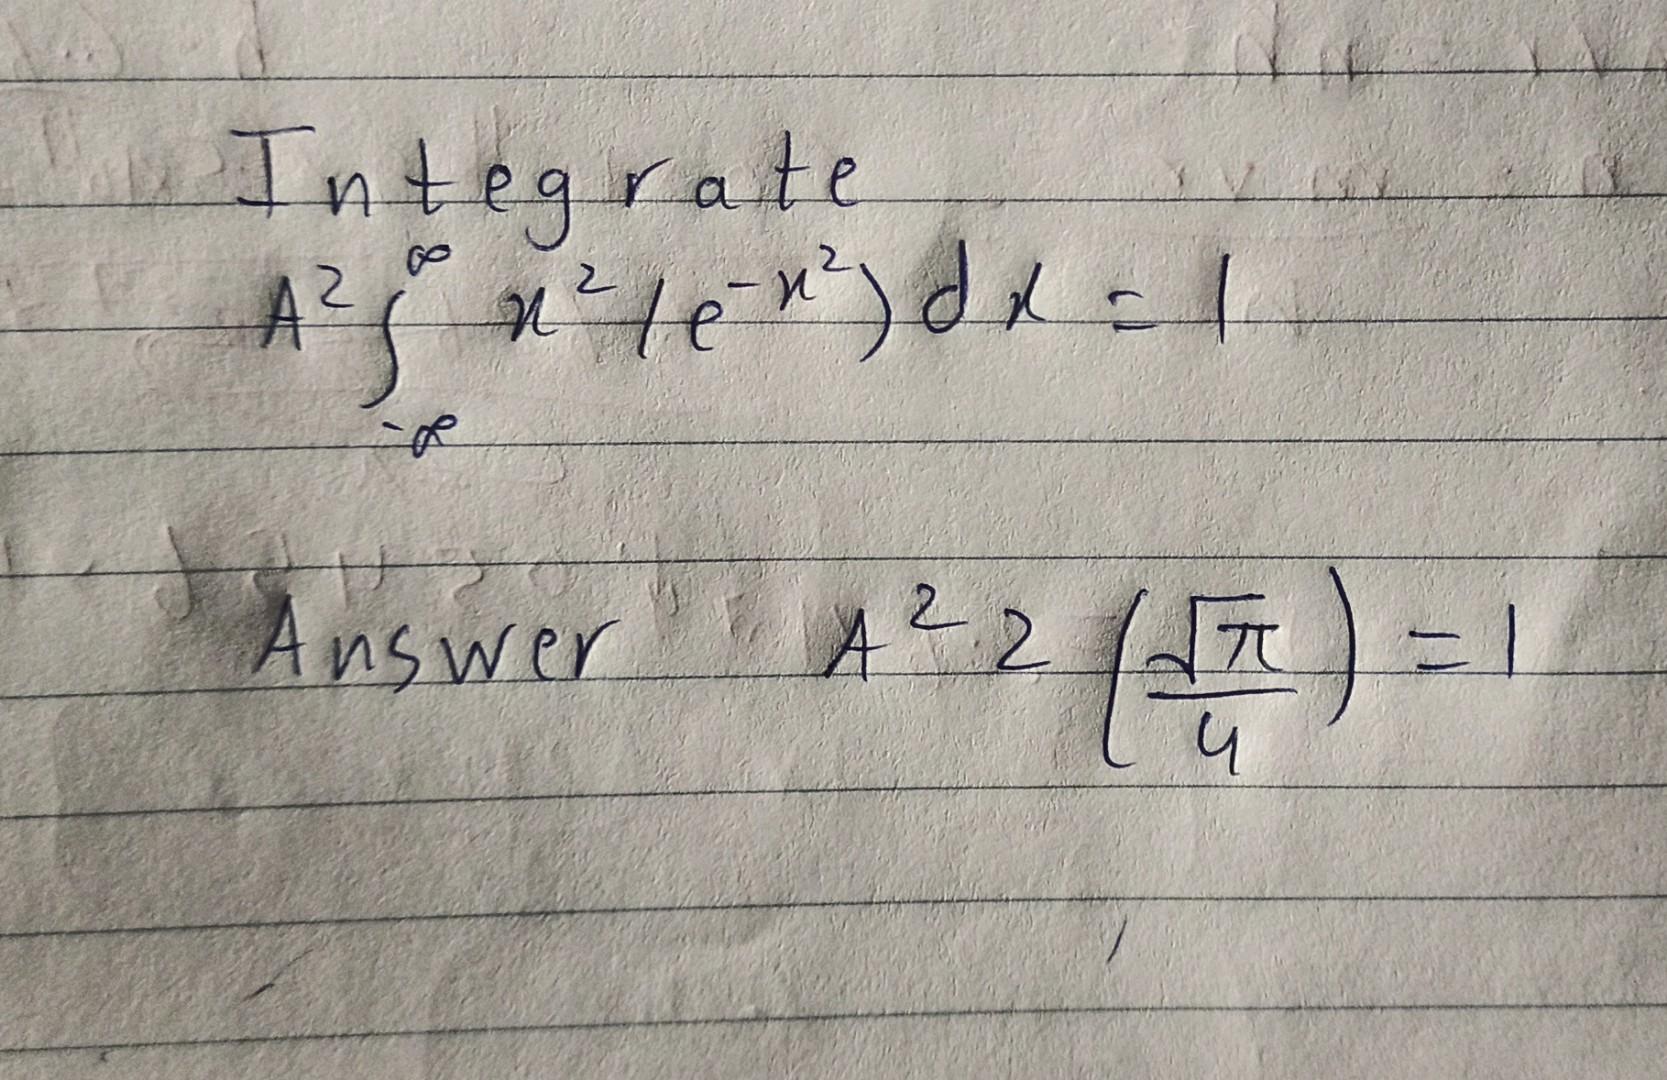 Integrate
A² ∫_{-∞}^{∞} x² (e^{-x²}) dx = 1
Answer A² 2 (√π/4) = 1